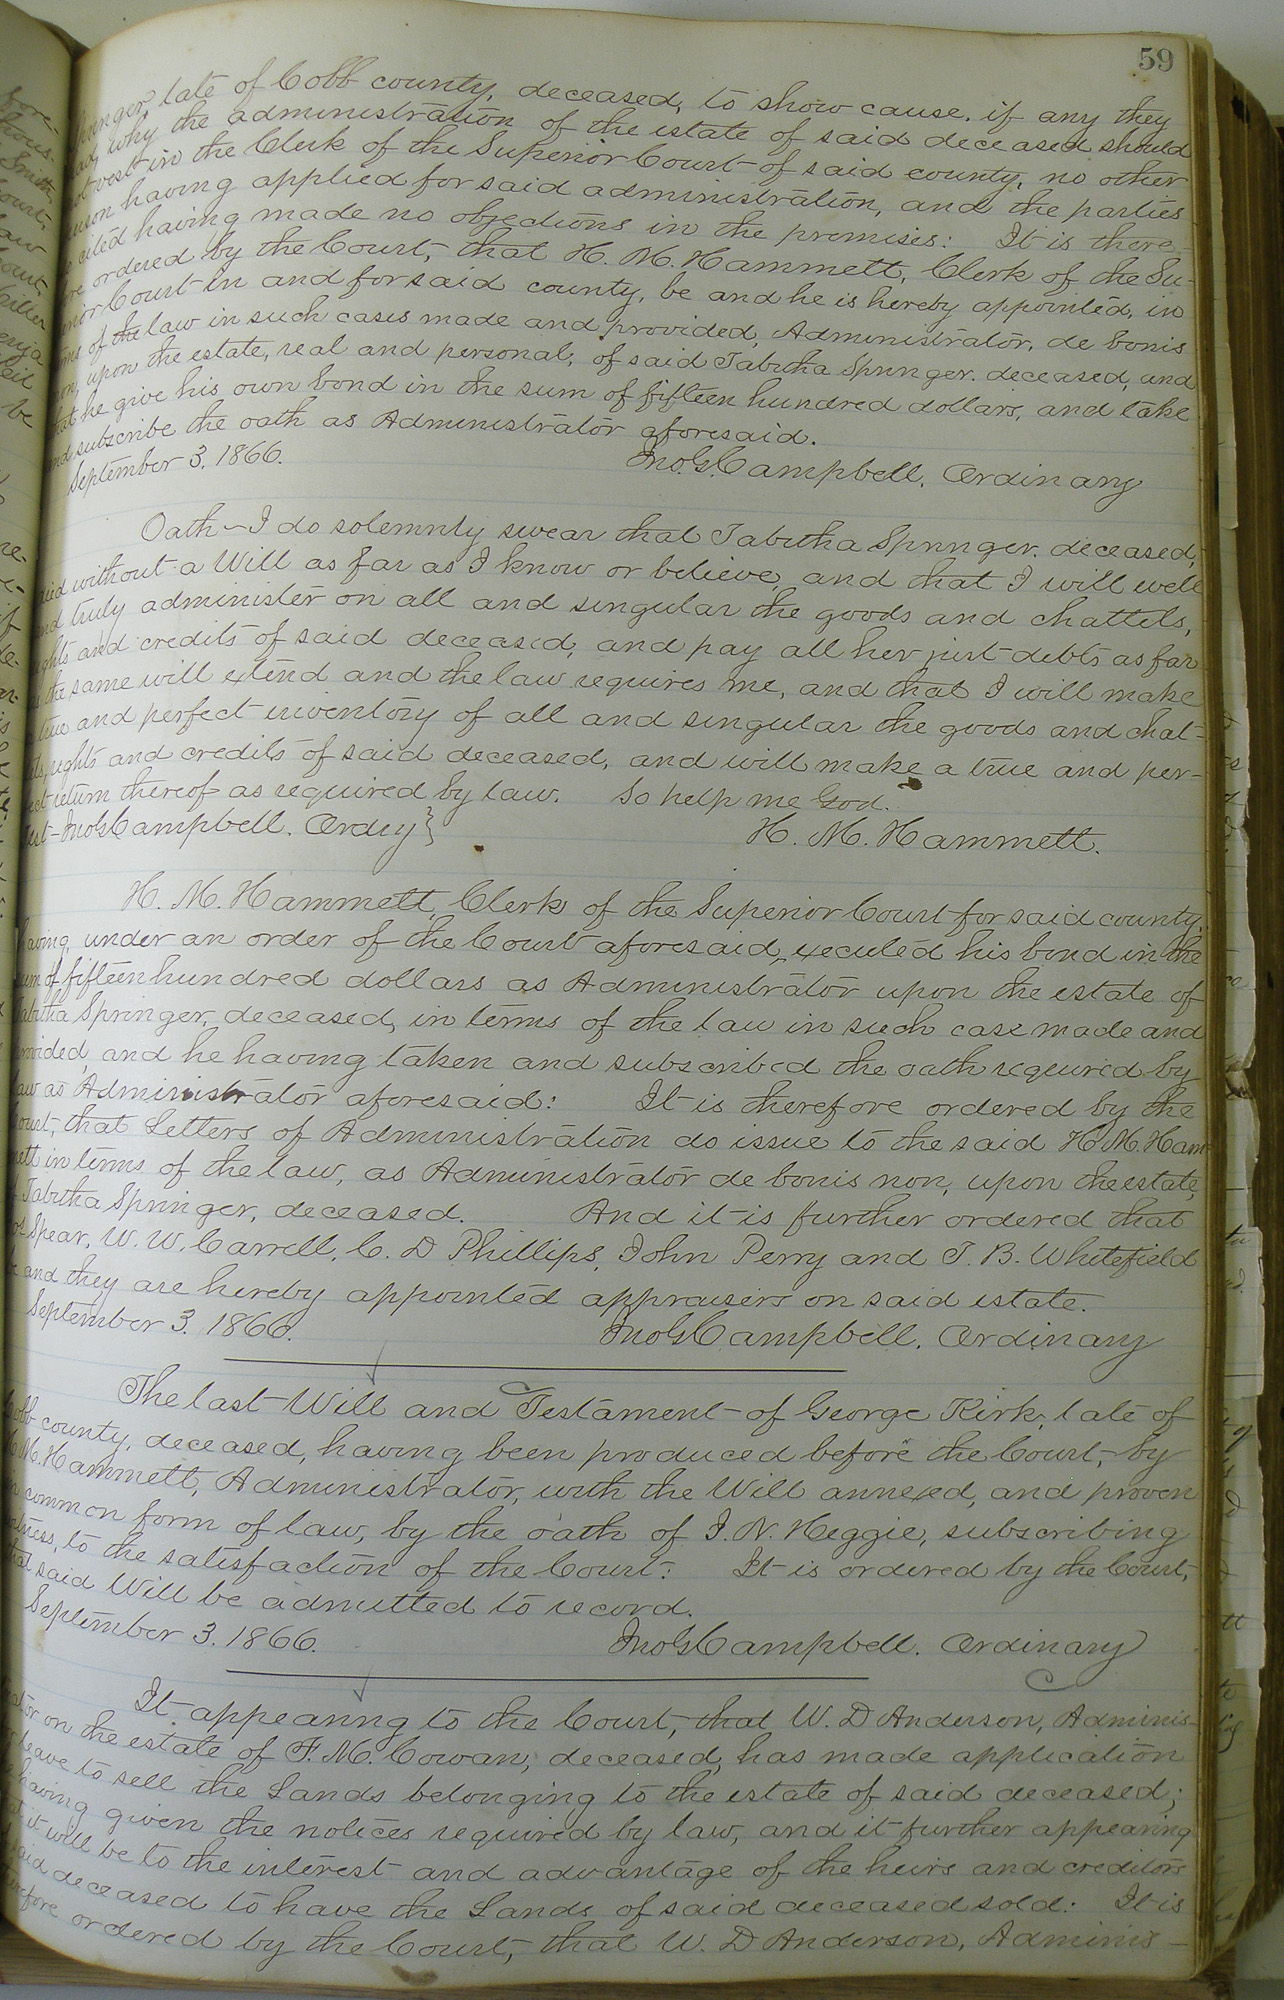 59
late of Cobb county, deceased, to show cause, if any they
why the administration of the estate of said deceased should
vest in the Clerk of the Superior Court of said county, no other
having applied for said administration, and the parties
cited having made no objections in the premises: It is there-
ordered by the Court, that H. M. Hammett, Clerk of the Su-
Court in and for said county, be and he is hereby appointed, in
of the law in such cases made and provided, Administrator, de bonis
upon the estate, real and personal, of said Tabitha Springer, deceased, and
he give his own bond in the sum of fifteen hundred dollars, and take
subscribe the oath as Administrator aforesaid.
September 3. 1866. Jno. G. Campbell, Ordinary
Oath - I do solemnly swear that Tabitha Springer, deceased,
died without a Will as far as I know or believe, and that I will well
and truly administer on all and singular the goods and chattels,
rights and credits of said deceased, and pay all her just debts as far
as the same will extend and the law requires me, and that I will make
true and perfect inventory of all and singular the goods and chat-
rights and credits of said deceased, and will make a true and per-
return thereof as required by law. So help me God.
Jno. G. Campbell. Ordry} H. M. Hammett.
H. M. Hammett, Clerk of the Superior Court for said county,
having, under an order of the Court aforesaid, executed his bond in the
sum of fifteen hundred dollars as Administrator upon the estate of
Tabitha Springer, deceased, in terms of the law in such case made and
provided, and he having taken and subscribed the oath required by
law as Administrator aforesaid: It is therefore ordered by the
Court, that Letters of Administration do issue to the said H. M. Ham-
mett in terms of the law, as Administrator de bonis non, upon the estate,
Tabitha Springer, deceased. And it is further ordered that
Spear, W. W. Carrell, C. D Phillips, John Perry and T. B. Whitefield
and they are hereby appointed appraisers on said estate.
September 3. 1866. Jno. G. Campbell. Ordinary
The last Will and Testament of George Kirk, late of
Cobb county, deceased, having been produced before the Court, by
H. M. Hammett, Administrator, with the Will annexed, and proven
in common form of law, by the oath of J. N. Heggie, subscribing
witness, to the satisfaction of the Court: It is ordered by the Court,
that said Will be admitted to record.
September 3. 1866. Jno. G. Campbell. Ordinary
It appearing to the Court, that W. D Anderson, Adminis-
on the estate of F. M. Cowan, deceased, has made application
leave to sell the Lands belonging to the estate of said deceased;
having given the notices required by law, and it further appearing
it will be to the interest and advantage of the heirs and creditors
said deceased to have the Lands of said deceased sold: It is
therefore ordered by the Court, that W. D Anderson, Adminis-